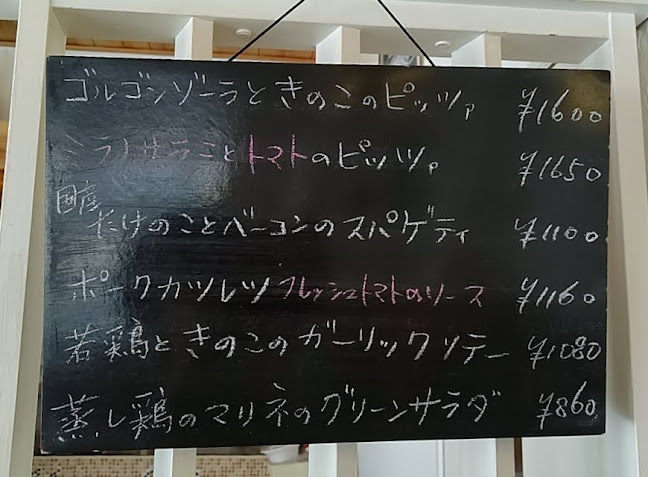 ゴルゴンゾーラときのこのピッツァ ¥1600
ミラノサラミとトマトのピッツァ ¥1650
国産たけのことベーコンのスパゲティ ¥1100
ポークカツレツフレッシュトマトのソース ¥1160
若鶏ときのこのガーリックソテー ¥1080
蒸し鶏のマリネのグリーンサラダ ¥860